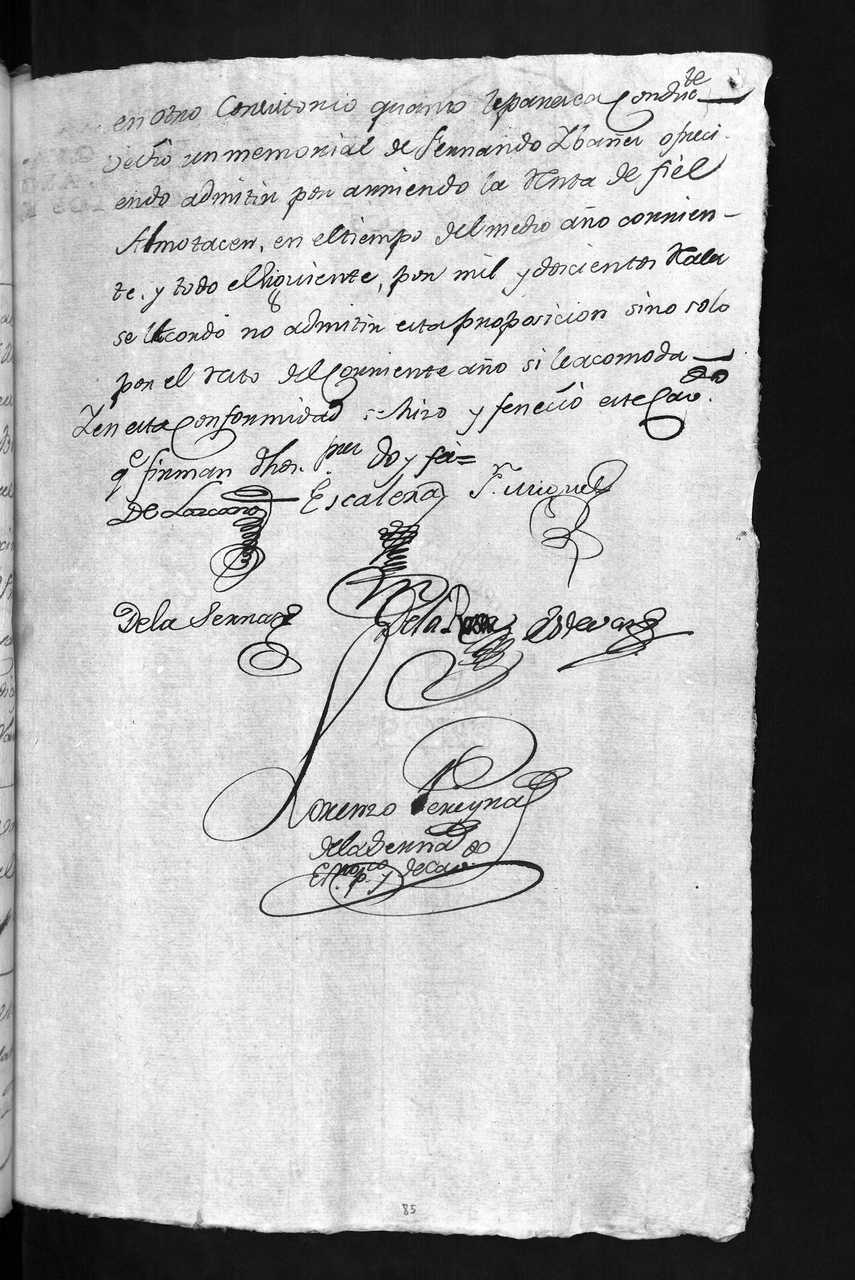 en otro Consistorio quanto le paresca Conduc.te
Vechō un memorial de Fernando Ybañes ofreci-
endo admitir por arriendo la Renta de fiel
Almotacen, en el tiempo del medio año corrien-
te. y todo el siguiente, por mil y doscientos Reales
se Acordó no admitir esta proposicion sino solo
por el resto del Corriente año si le acomoda
Y en esta Conformidad se hizo y feneció este Cav.do
q.e firman dhos. y fee=
De Lazcano Escalera F. Miguel
De la Serna De la Estevan
Lorenzo Pereyra
de la Serna
Es.no p.co y de Cav.do
85